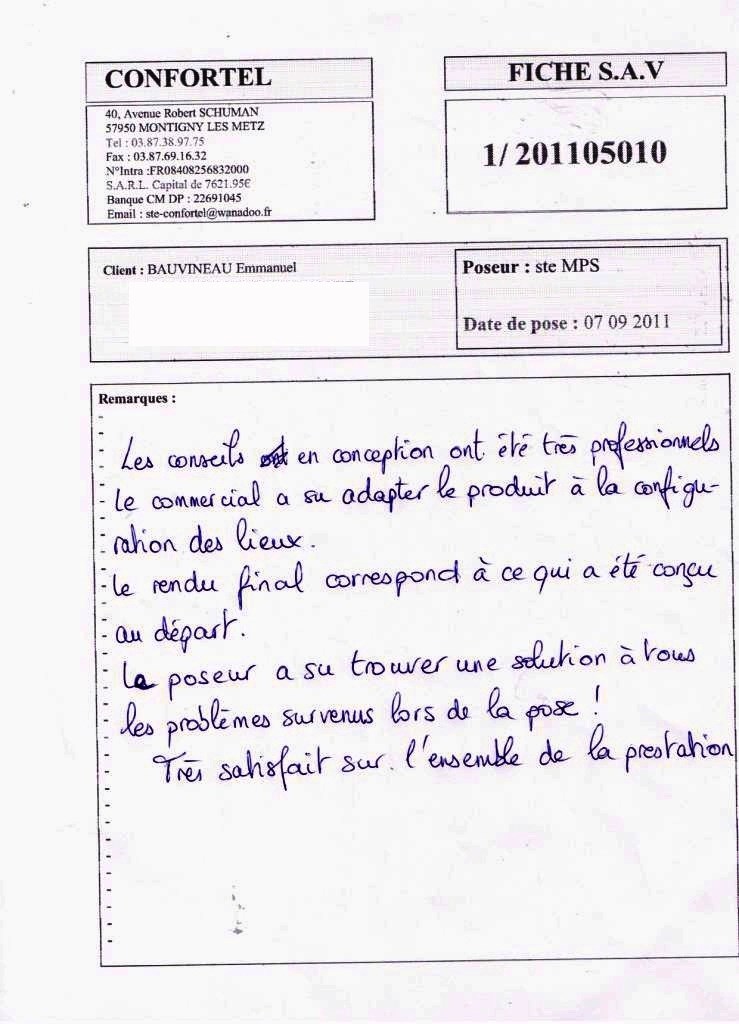 CONFORTEL
FICHE S.A.V
40, Avenue Robert SCHUMAN
57950 MONTIGNY LES METZ
Tel : 03.87.38.97.75
Fax : 03.87.69.16.32
N°Intra :FR08408256832000
S.A.R.L. Capital de 7621.95€
Banque CM DP : 22691045
Email : ste-confortel@wanadoo.fr
1/ 201105010
Client : BAUVINEAU Emmanuel
Poseur : ste MPS
Date de pose : 07 09 2011
Remarques :
Les conseils en conception ont été très professionnels
Le commercial a su adapter le produit à la configu-
ration des lieux.
Le rendu final correspond à ce qui a été conçu
au départ.
Le poseur a su trouver une solution à tous
les problèmes survenus lors de la pose !
Très satisfait sur l'ensemble de la prestation